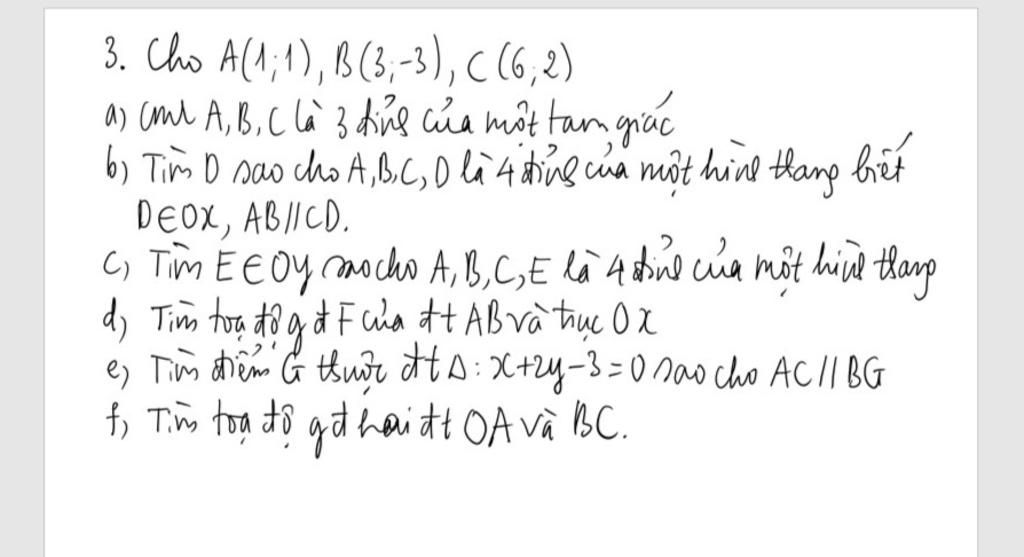 3. Cho A(1;1), B(3;-3), C(6;2)
a) cmr A, B, C là 3 đỉnh của một tam giác
b) Tìm D sao cho A, B, C, D là 4 đỉnh của một hình thang biết
D∈Ox, AB//CD.
c) Tìm E∈Oy sao cho A, B, C, E là 4 đỉnh của một hình thang
d) Tìm toạ độ gđ F của đt AB và trục Ox
e) Tìm điểm G thuộc đt Δ: x+2y-3=0 sao cho AC//BG
f) Tìm toạ độ gđ hai đt OA và BC.